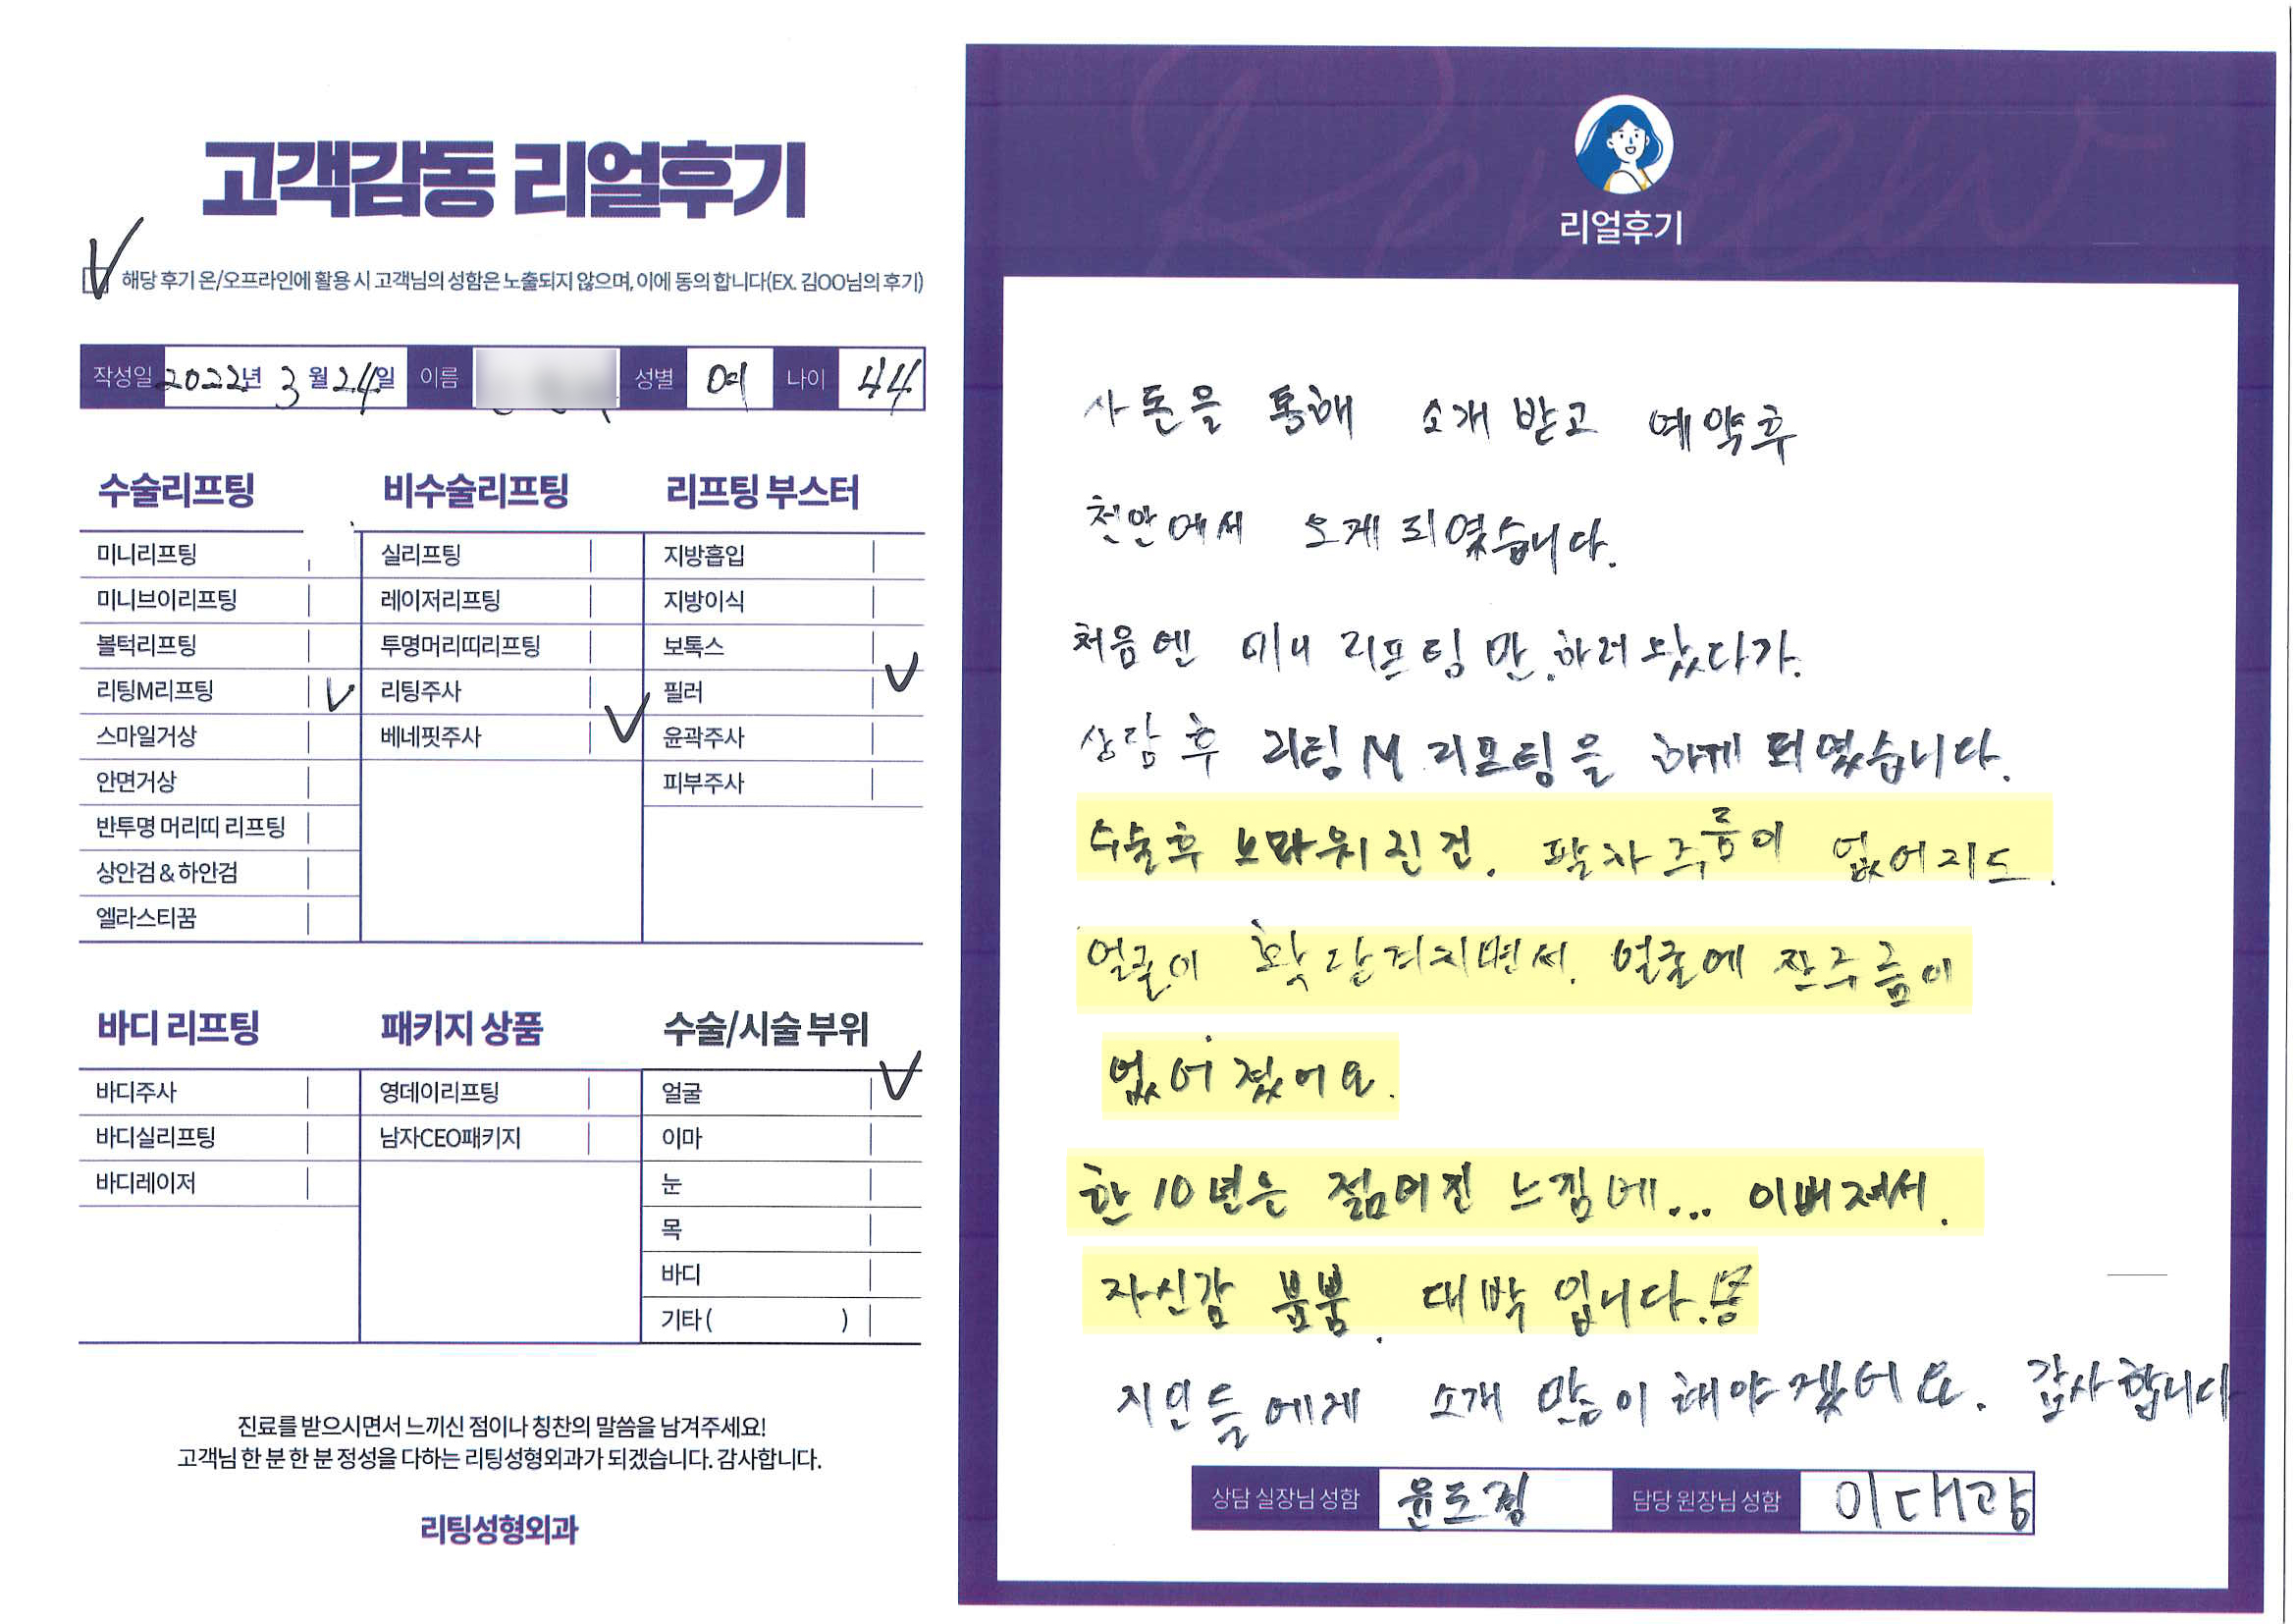 고객감동 리얼후기
해당 후기 온/오프라인에 활용 시 고객님의 성함은 노출되지 않으며, 이에 동의 합니다(EX. 김OO님의 후기)
작성일 2022년 3월 24일 이름 성별 여 나이 44
수술리프팅
미니리프팅
미니브이리프팅
볼턱리프팅
리팅M리프팅
스마일거상
안면거상
반투명 머리띠 리프팅
상안검 & 하안검
엘라스티꿈
비수술리프팅
실리프팅
레이저리프팅
투명머리띠리프팅
리팅주사
베네핏주사
리프팅 부스터
지방흡입
지방이식
보톡스
필러
윤곽주사
피부주사
바디 리프팅
바디주사
바디실리프팅
바디레이저
패키지 상품
영데이리프팅
남자CEO패키지
수술/시술 부위
얼굴
이마
눈
목
바디
기타 ( )
진료를 받으시면서 느끼신 점이나 칭찬의 말씀을 남겨주세요!
고객님 한 분 한 분 정성을 다하는 리팅성형외과가 되겠습니다. 감사합니다.
리팅성형외과
Review
리얼후기
사돈을 통해 소개 받고 예약후
천안에서 오게 되였습니다.
처음엔 미니 리프팅만.하러 왔다가.
상담후 리팅M 리프팅을 하게 되였습니다.
수술후 노마워진건. 팔자주름이 없어지도.
얼굴이 확 당겨지면서. 얼굴에 잔주름이
없어졌어요.
한 10년은 젊어진 느낌에... 이뻐져서.
자신감 뿜뿜. 대박 입니다.
지인들에게 소개 많이 해야겠어요. 감사합니다
상담 실장님 성함 윤도경 담당 원장님 성함 이대광